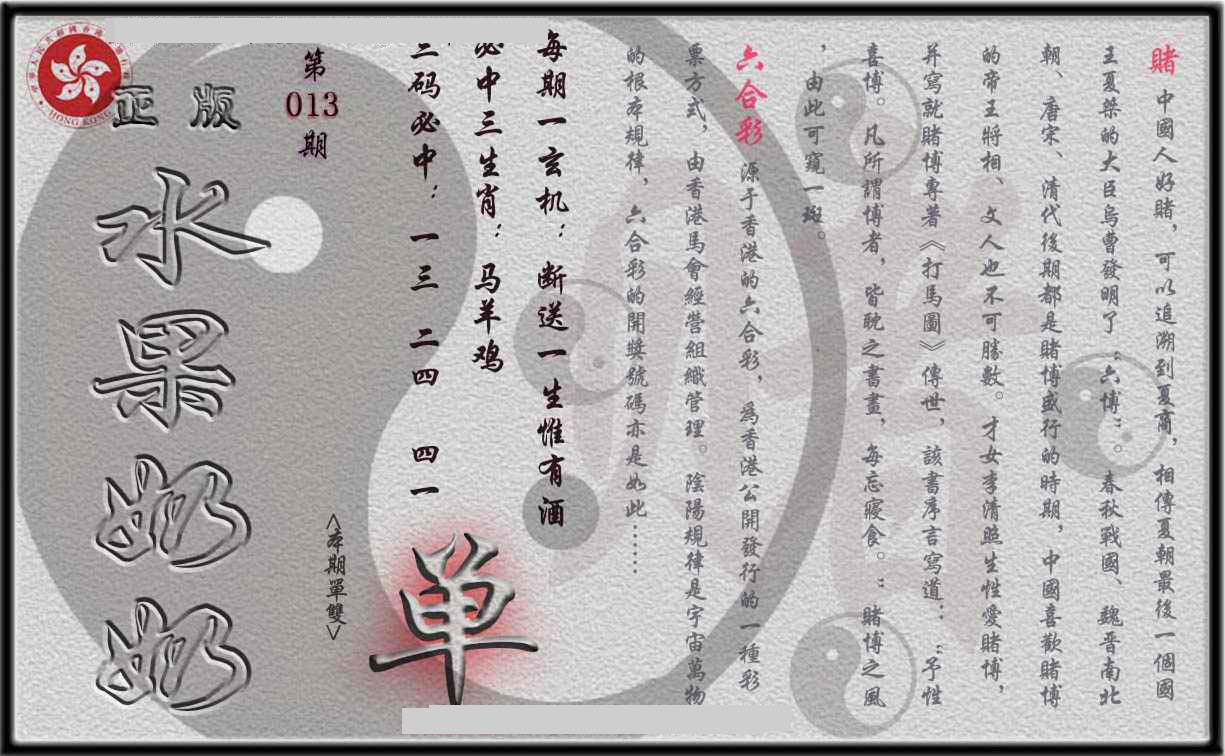 賭 中國人好賭，可以追溯到夏商，相傳夏朝最後一個國
王夏桀的大臣烏曹發明了“六博”。春秋戰國、魏晋南北
朝、唐宋、清代後期都是賭博盛行的時期，中國喜歡賭博
的帝王將相、文人也不可勝數。才女李清照生性愛賭博，
并寫就賭博專著《打馬圖》傳世，該書序言寫道：“予性
喜博。凡所謂博者，皆耽之書畫，每忘寢食。”賭博之風
，由此可窺一斑。
六合彩 源于香港的六合彩，爲香港公開發行的一種彩
票方式，由香港馬會經營組織管理。陰陽規律是宇宙萬物
的根本規律，六合彩的開獎號碼亦是如此……
每期一玄机：断送一生惟有酒
必中三生肖：马羊鸡
三码必中：一三 二四 四一
单
第
013
期
<本期單雙>
正版
水果奶奶
HONG KONG